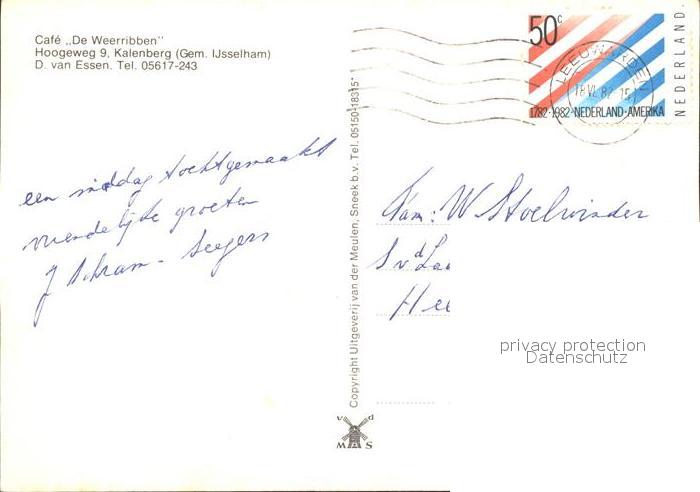 Café „De Weerribben"
Hoogeweg 9, Kalenberg (Gem. IJsselham)
D. van Essen. Tel. 05617-243
een middag tocht gemaakt
vriendelijke groeten
J Schram - Seegers
Copyright Uitgeverij van der Meulen, Sneek b.v. Tel. 05150-18315*
v d
MAS
50c
NEDERLAND.
1782·1982·NEDERLAND·AMERIKA
LEEUWARDEN
18 VI 82
Fam: W Stoelwinder
privacy protection
Datenschutz